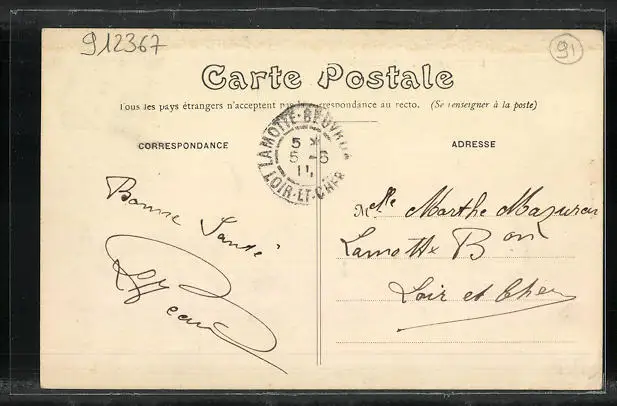 912367
91
Carte Postale
Tous les pays étrangers n'acceptent pas la correspondance au recto. (Se renseigner à la poste)
LAMOTTE-BEUVRON
5 *
6 - 6
11
LOIR-ET-CHER
CORRESPONDANCE
ADRESSE
Bonne Santé
Melle Marthe Mazureu
Lamotte Bon
Loir et Cher